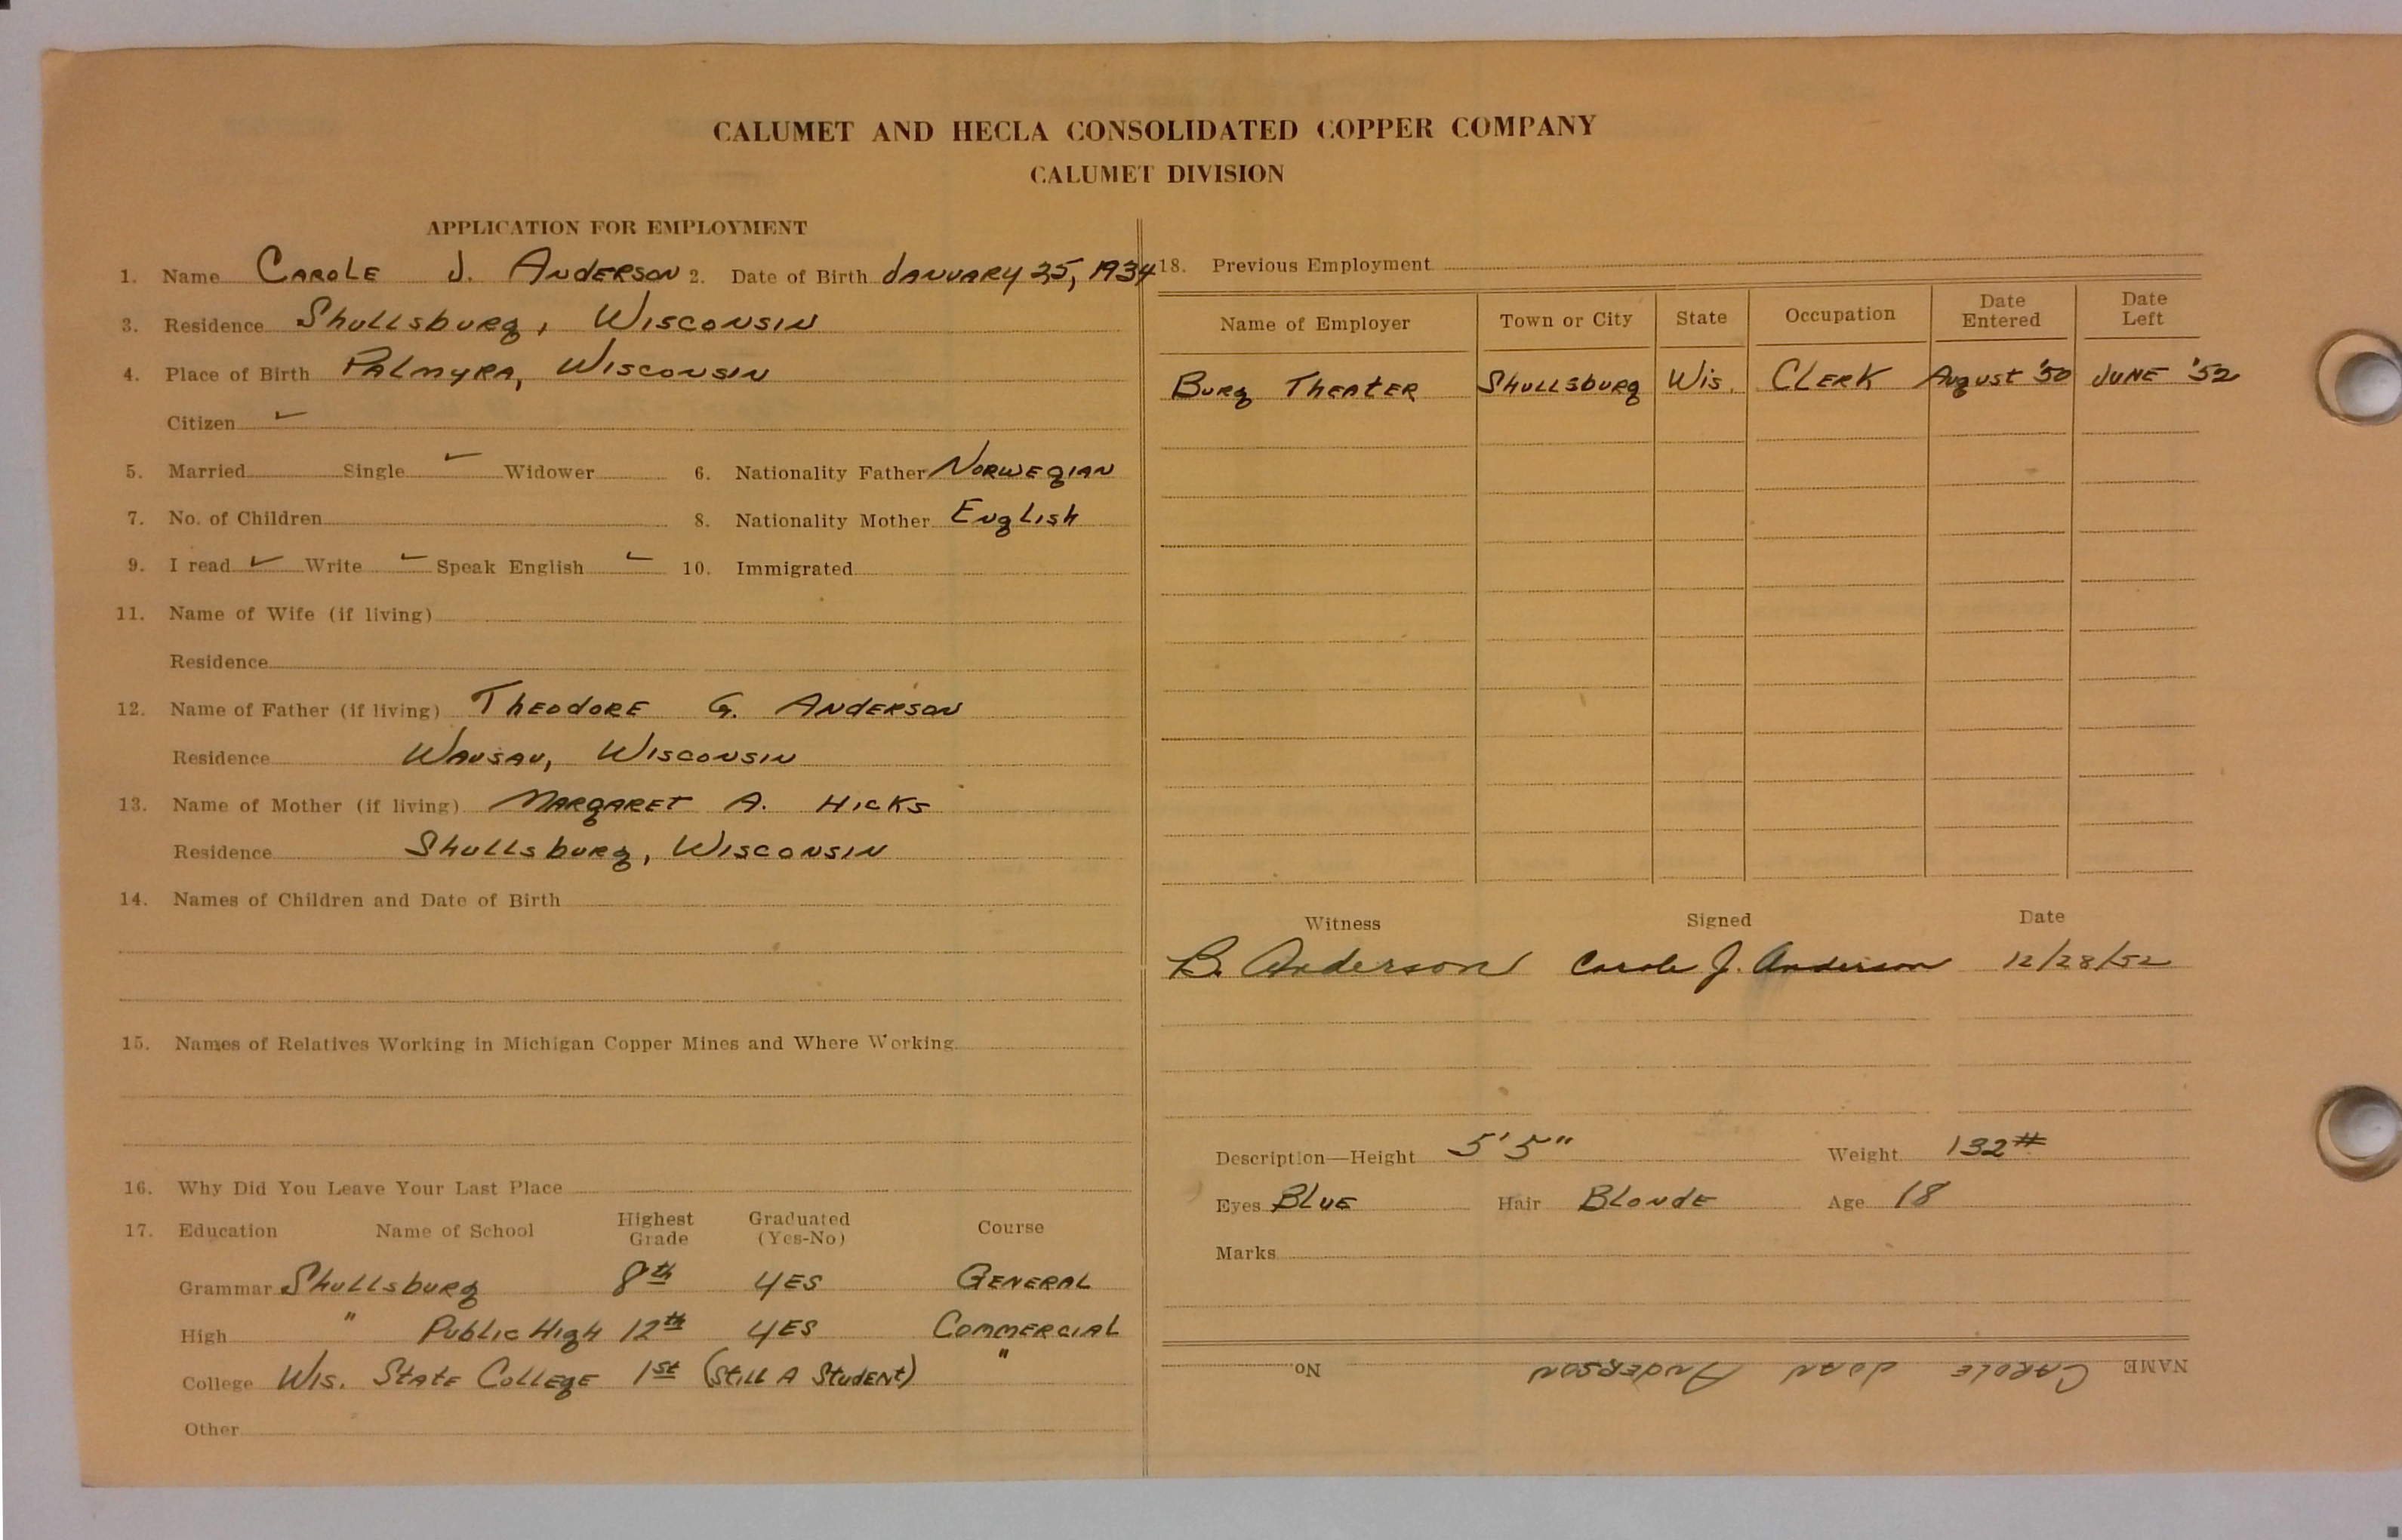 CALUMET AND HECLA CONSOLIDATED COPPER COMPANY
CALUMET DIVISION
APPLICATION FOR EMPLOYMENT
1. Name CAROLE J. ANDERSON 2. Date of Birth JANUARY 25, 1934
3. Residence Shullsburg, WISCONSIN
4. Place of Birth PALMYRA, WISCONSIN
Citizen ✓
5. Married Single ✓ Widower 6. Nationality Father NORWEGIAN
7. No. of Children 8. Nationality Mother English
9. I read ✓ Write ✓ Speak English ✓ 10. Immigrated
11. Name of Wife (if living)
Residence
12. Name of Father (if living) THEODORE G. ANDERSON
Residence WAUSAU, WISCONSIN
13. Name of Mother (if living) MARGARET A. HICKS
Residence Shullsburg, WISCONSIN
14. Names of Children and Date of Birth
15. Names of Relatives Working in Michigan Copper Mines and Where Working
16. Why Did You Leave Your Last Place
17. Education Name of School Highest Grade Graduated (Yes-No) Course
Grammar Shullsburg 8th YES GENERAL
High " Public High 12th YES COMMERCIAL
College WIS. STATE COLLEGE 1st (Still A Student) "
Other
18. Previous Employment
Name of Employer Town or City State Occupation Date Entered Date Left
BURG THEATER SHULLSBURG WIS. CLERK August '50 JUNE '52
Witness Signed Date
B. Anderson Carole J. Anderson 12/28/52
Description—Height 5'5" Weight 132#
Eyes BLUE Hair BLONDE Age 18
Marks
NAME CAROLE JOAN ANDERSON No.